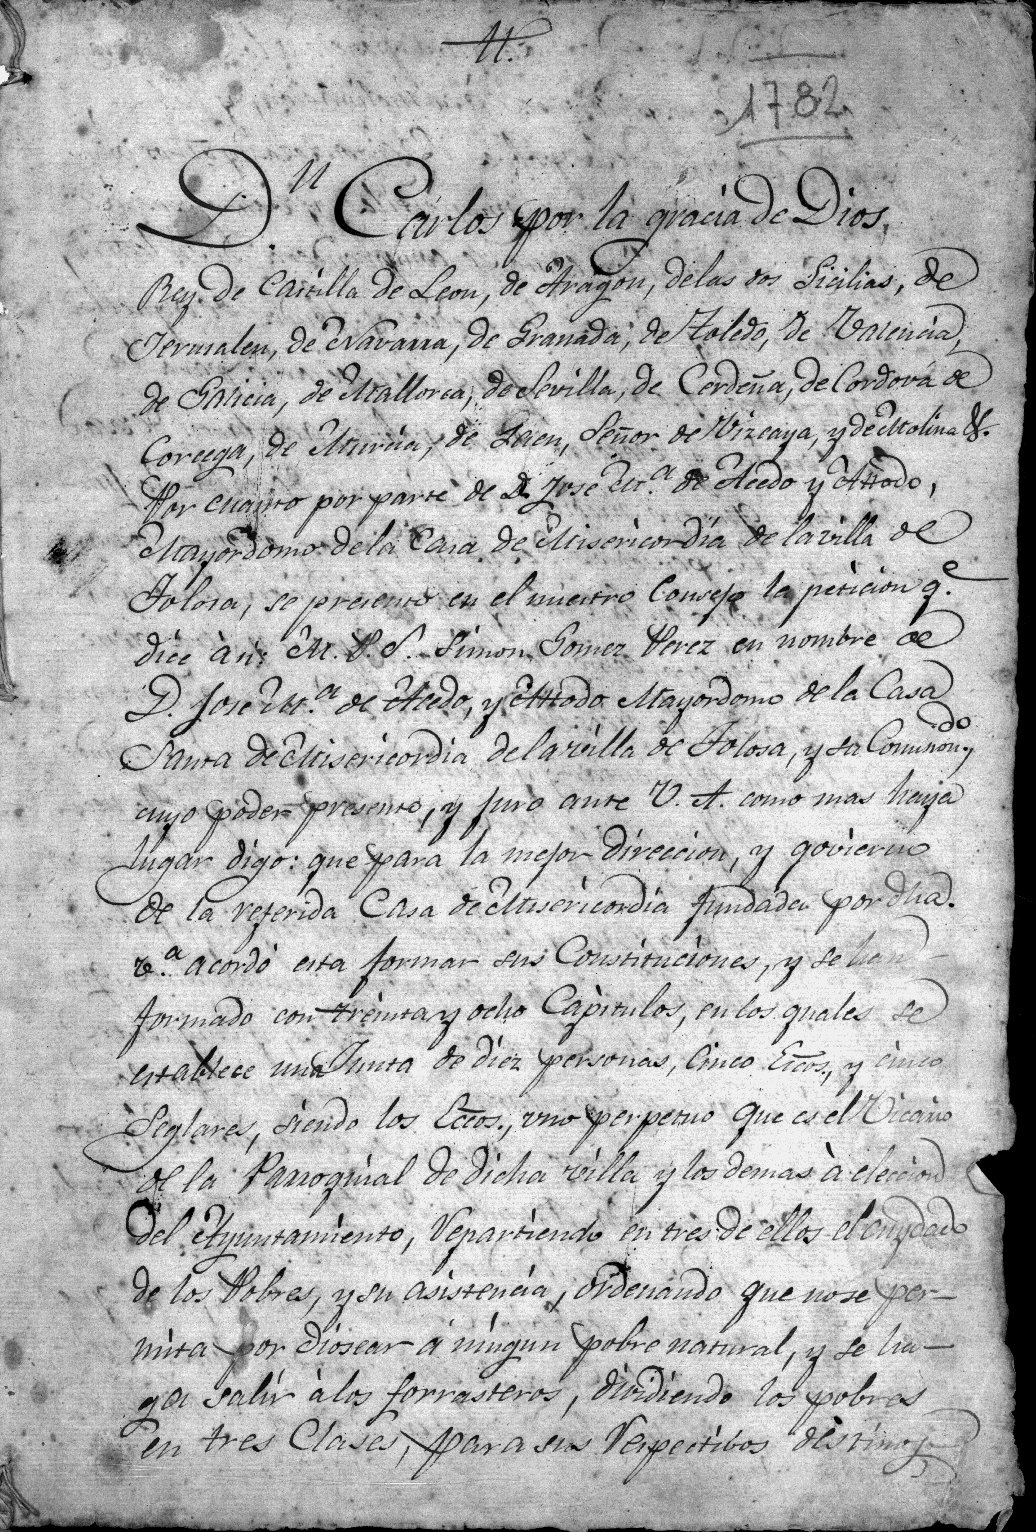 11.
1782
D.n Carlos por la gracia de Dios,
Rey de Castilla de Leon, de Aragon, delas dos Sicilias, de
Jerusalen, de Navarra, de Granada, de Toledo, de Valencia,
de Galicia, de Mallorca, de Sevilla, de Cerdeña, de Cordova de
Corcega, de Murcia, de Jaen, Señor de Vizcaya, y de Molina &.
Por cuanto por parte de D. José M.a de Acedo y Attodo,
Mayordomo dela Casa de Misericordia de la villa de
Tolosa, se presentó en el nuestro Consejo la peticion q.e
dice àsi: M. P. S. Simon Gomez Perez en nombre de
D. José M.a de Acedo, y Attodo Mayordomo de la Casa
Santa de Misericordia de la villa de Tolosa, y su Comunidad,
cuyo poder presento, y juro ante V. A. como mas haya
lugar digo: que para la mejor direccion, y govierno
de la referida Casa de Misericordia fundada por dha
v.a acordó esta formar sus Constituciones, y se han
formado con treinta y ocho Capitulos, en los quales se
establece una Junta de diez personas, cinco Eccos., y cinco
Seglares, siendo los Eccos., uno perpetuo que es el Vicario
de la Parroquial de dicha villa y los demas à eleccion
del Ayuntamiento, repartiendo en tres de ellos el cuydado
de los Pobres, y su asistencia, ordenando que no se per-
mita por diosear á ningun pobre natural, y se ha-
ga salir à los forrasteros, dividiendo los pobres
en tres Clases, para sus respectibos destinos